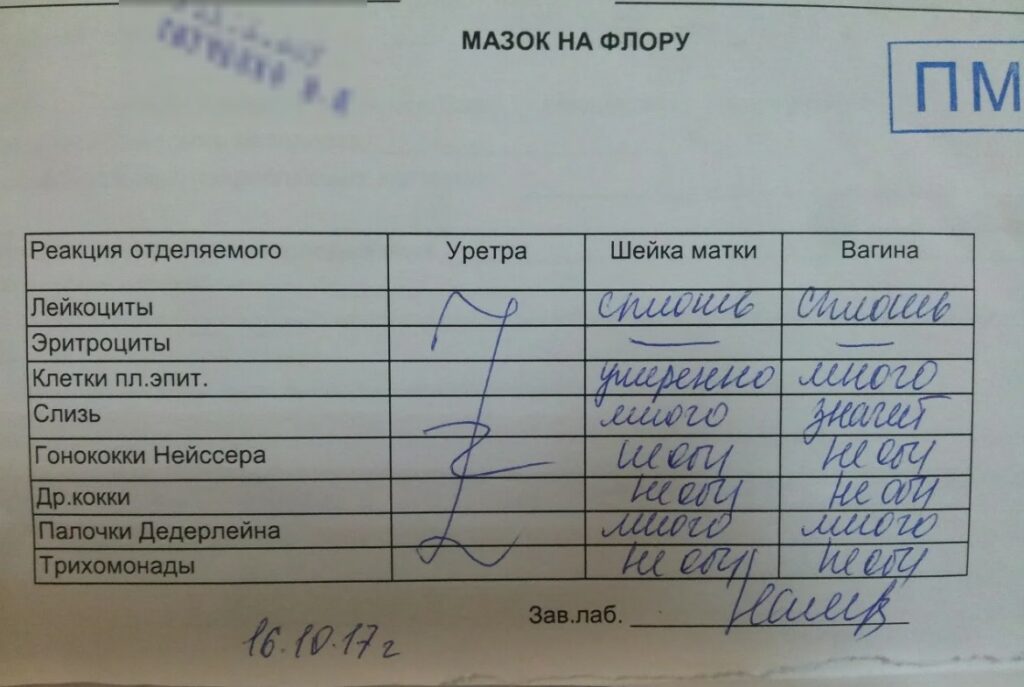 МАЗОК НА ФЛОРУ
ПМ
Реакция отделяемого Уретра Шейка матки Вагина
Лейкоциты сплошь сплошь
Эритроциты — —
Клетки пл.эпит. умеренно много
Слизь много значит
Гонококки Нейссера не обн не обн
Др.кокки не обн не обн
Палочки Дедерлейна много много
Трихомонады не обн не обн
Зав.лаб.
16.10.17г